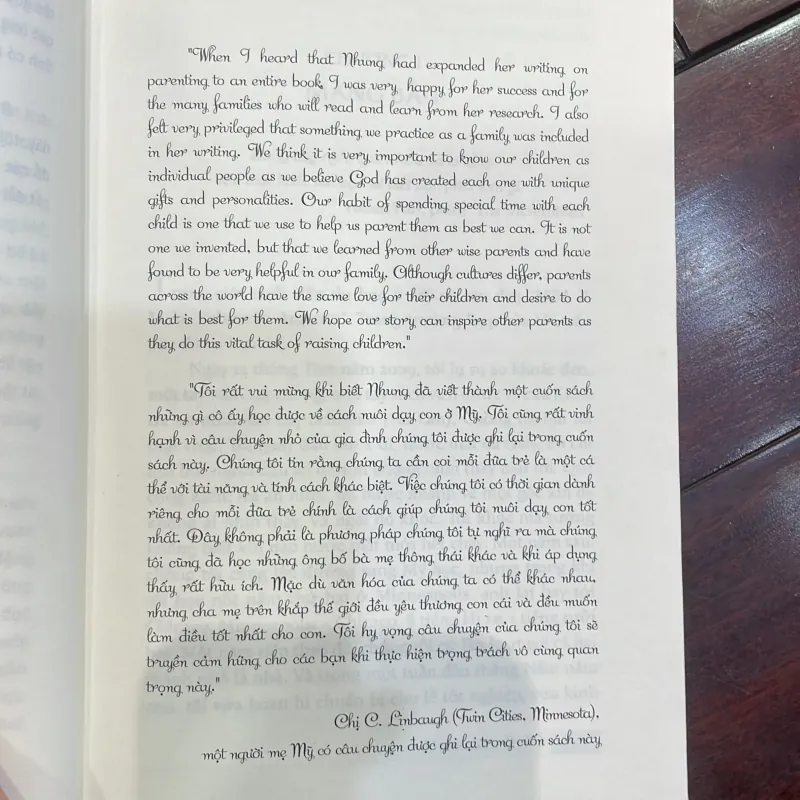 "When I heard that Nhung had expanded her writing on
parenting to an entire book, I was very, happy for her success and for
the many families who will read and learn from her research. I also
felt very privileged that something we practice as a family was included
in her writing. We think it is very important to know our children as
individual people as we believe God has created each one with unique
gifts and personalities. Our habit of spending special time with each
child is one that we use to help us parent them as best we can. It is not
one we invented, but that we learned from other wise parents and have
found to be very helpful in our family. Although cultures differ, parents
across the world have the same love for their children and desire to do
what is best for them. We hope our story can inspire other parents as
they do this vital task of raising children."
"Tôi rất vui mừng khi biết Nhung đã viết thành một cuốn sách
những gì cô ấy học được về cách nuôi dạy con ở Mỹ. Tôi cũng rất vinh
hạnh vì câu chuyện nhỏ của gia đình chúng tôi được ghi lại trong cuốn
sách này. Chúng tôi tin rằng chúng ta cần coi mỗi đứa trẻ là một cá
thể với tài năng và tính cách khác biệt. Việc chúng tôi có thời gian dành
riêng cho mỗi đứa trẻ chính là cách giúp chúng tôi nuôi dạy con tốt
nhất. Đây không phải là phương pháp chúng tôi tự nghĩ ra mà chúng
tôi cũng đã học những ông bố bà mẹ thông thái khác và khi áp dụng
thấy rất hữu ích. Mặc dù văn hóa của chúng ta có thể khác nhau,
nhưng cha mẹ trên khắp thế giới đều yêu thương con cái và đều muốn
làm điều tốt nhất cho con. Tôi hy vọng câu chuyện của chúng tôi sẽ
truyền cảm hứng cho các bạn khi thực hiện trọng trách vô cùng quan
trọng này."
Chị C. Linbaugh (Twin Cities, Minnesota),
một người mẹ Mỹ có câu chuyện được ghi lại trong cuốn sách này